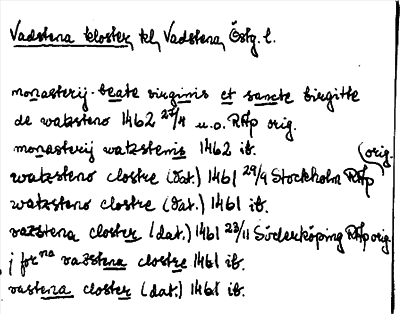 Vadstena kloster, kl, Vadstena, Östg. l.
monasterij beate virginis et sancte birgitte
de watzsteno 1462 27/4 u.o. RAp orig.
monasterij watzstenis 1462 ib.
watzsteno clostre (dat.) 1461 29/9 Stockholm RAp (orig.
watzsteno clostre (dat.) 1461 ib.
vazstena closter (dat.) 1461 23/11 Söderköping RAp orig
j forna vazstena clostre 1461 ib.
vastena closter (dat.) 1461 ib.